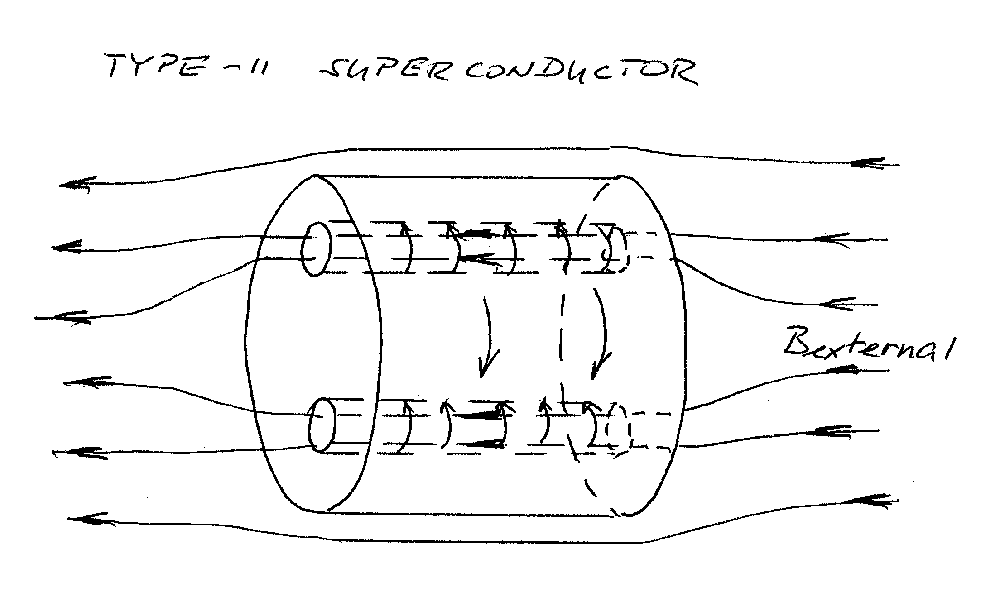 TYPE-II SUPERCONDUCTOR
Bexternal